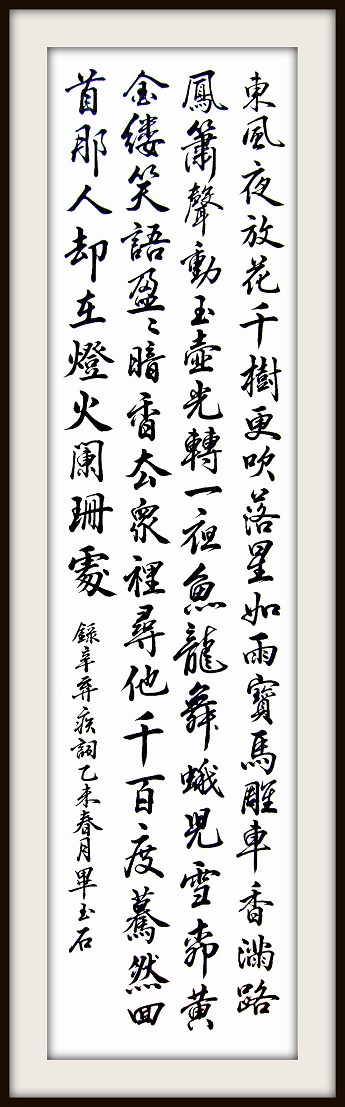 東風夜放花千樹更吹落星如雨寶馬雕車香滿路
鳳簫聲動玉壺光轉一夜魚龍舞蛾兒雪柳黃
金缕笑語盈〻暗香去衆裡尋他千百度驀然回
首那人却在燈火阑珊處
録辛弃疾詞乙未春月畢玉石